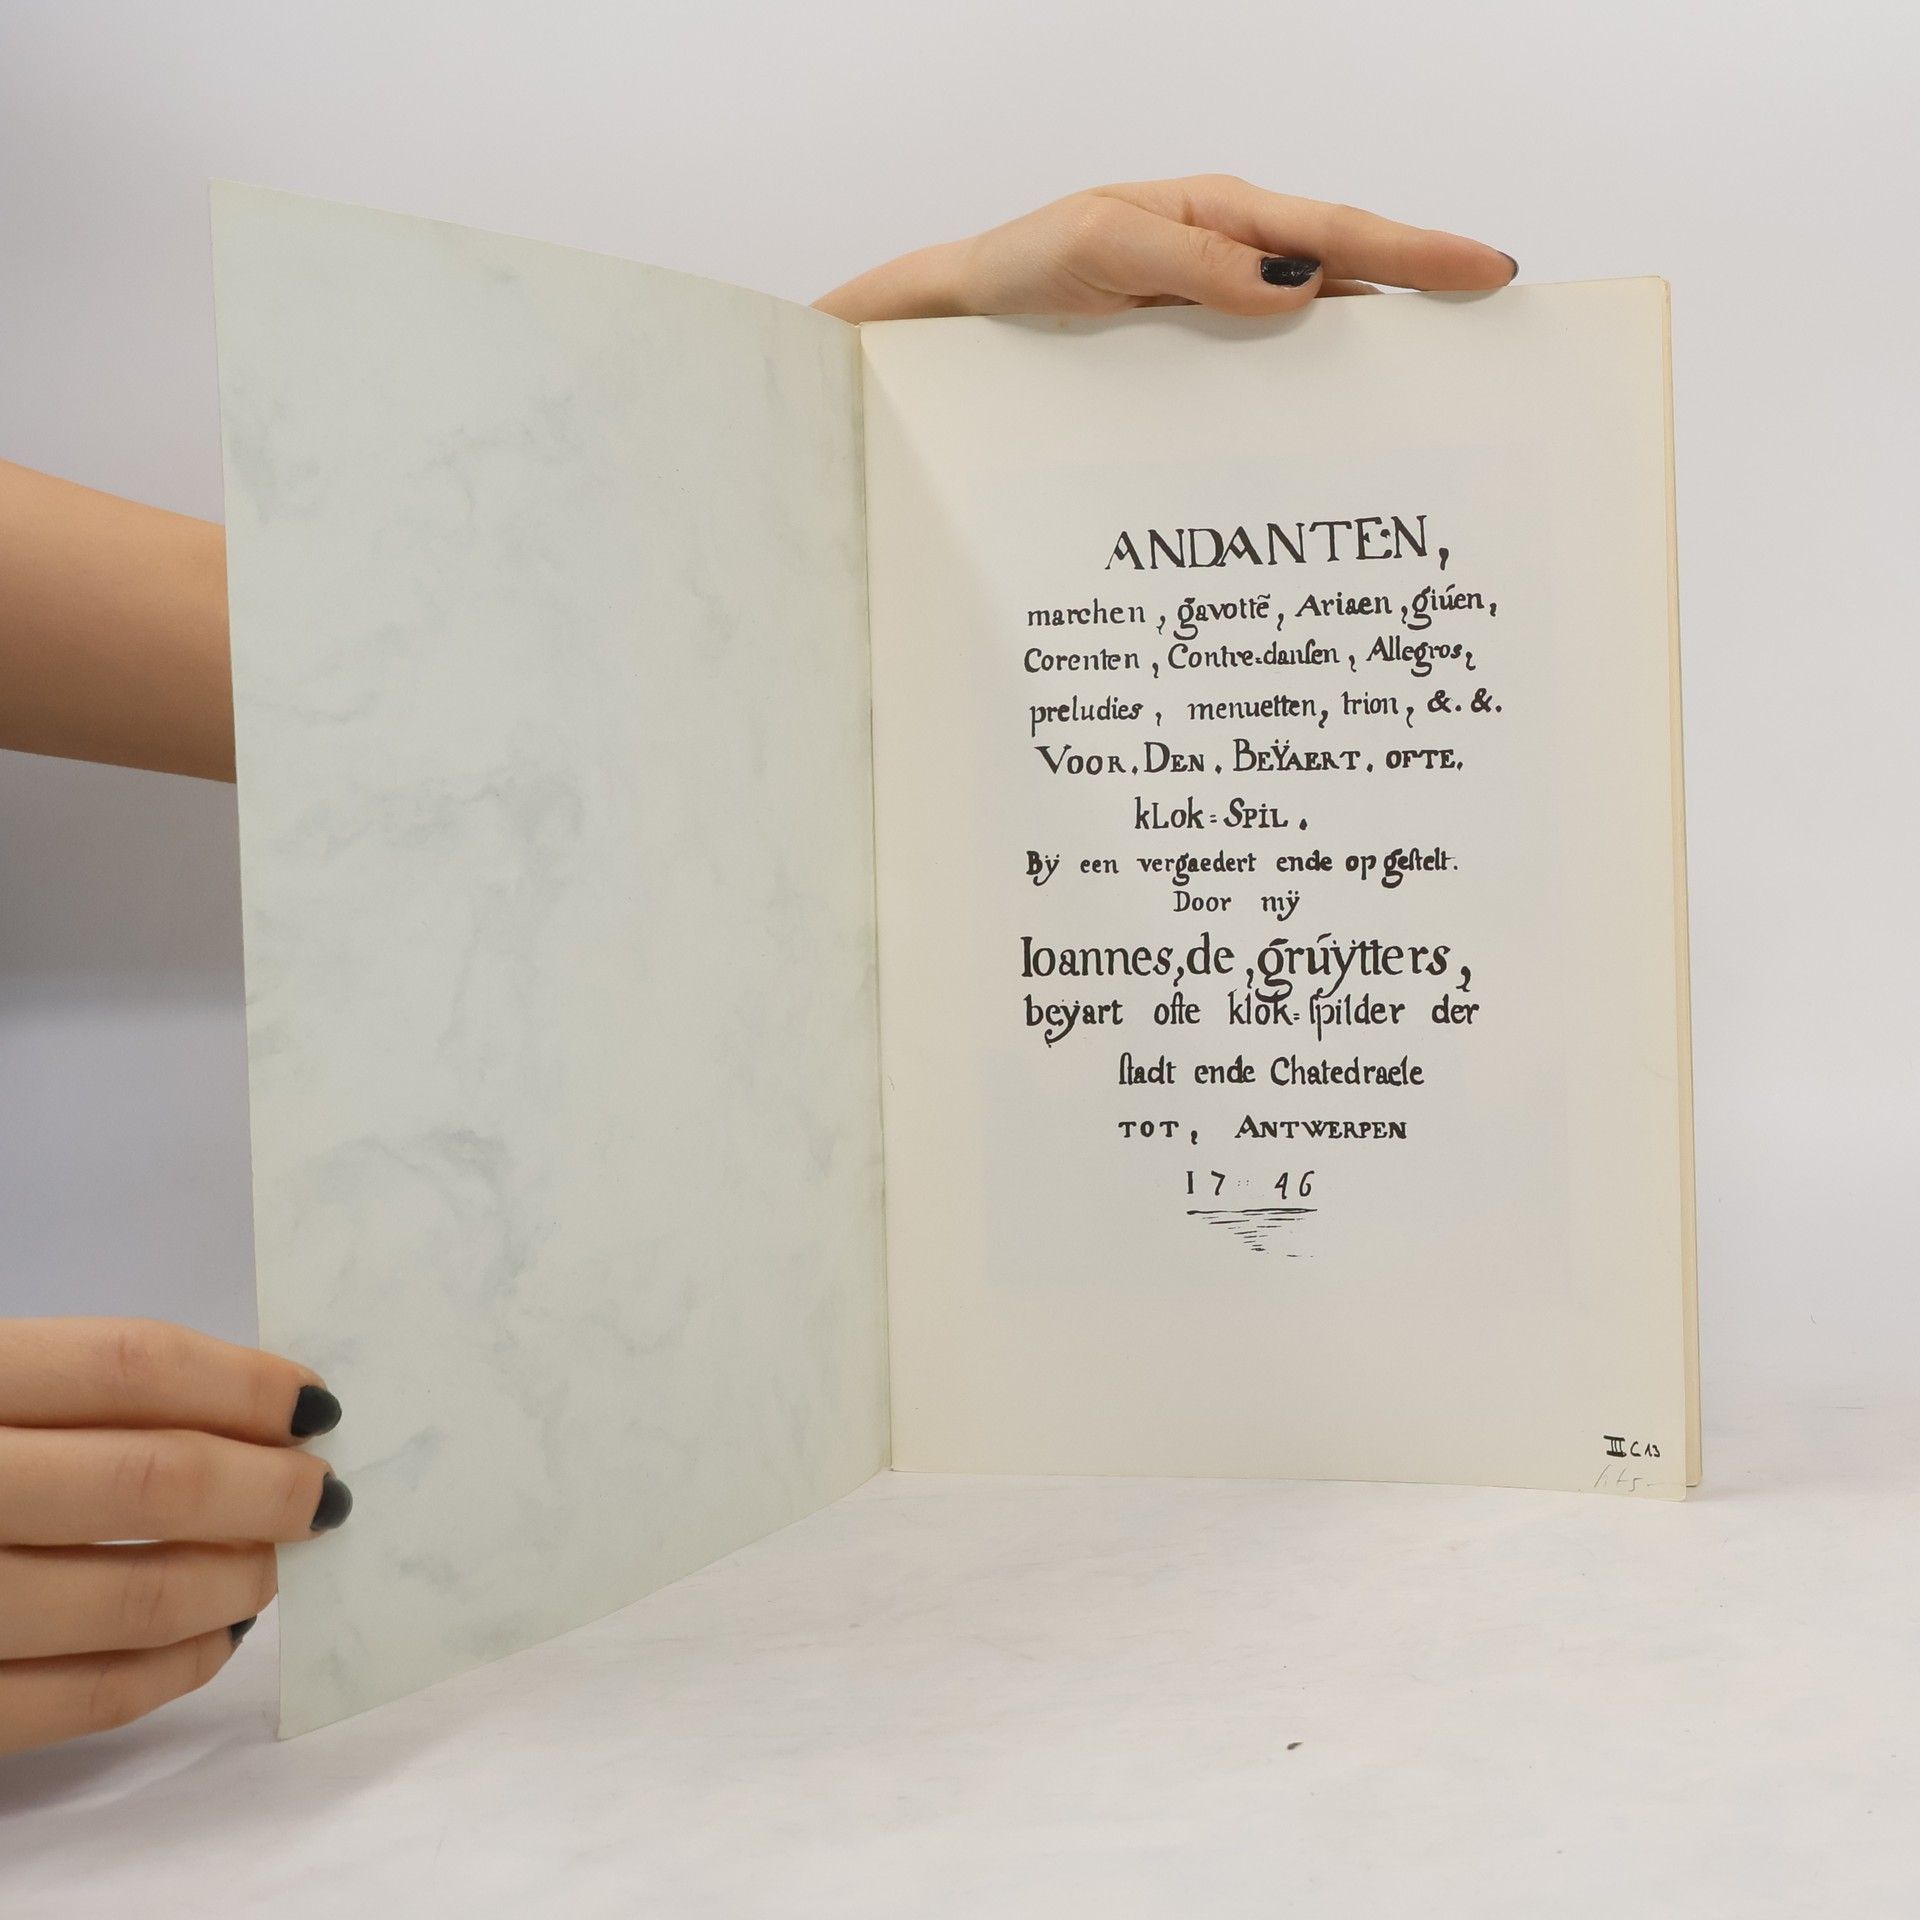 ANDANTEN,
marchen, gavottẽ, Ariaen, giúen,
Corenten, Contre=danſen, Allegros,
preludies, menuetten, trion, &. &.
VOOR. DEN. BEŸAERT. OFTE.
kLok=SPIL.
Bÿ een vergaedert ende op geſtelt.
Door mÿ
Ioannes, de, grúÿtters,
beÿart ofte klok=ſpilder der
ſtadt ende Chatedraele
TOT, ANTWERPEN
17::46
III C 13